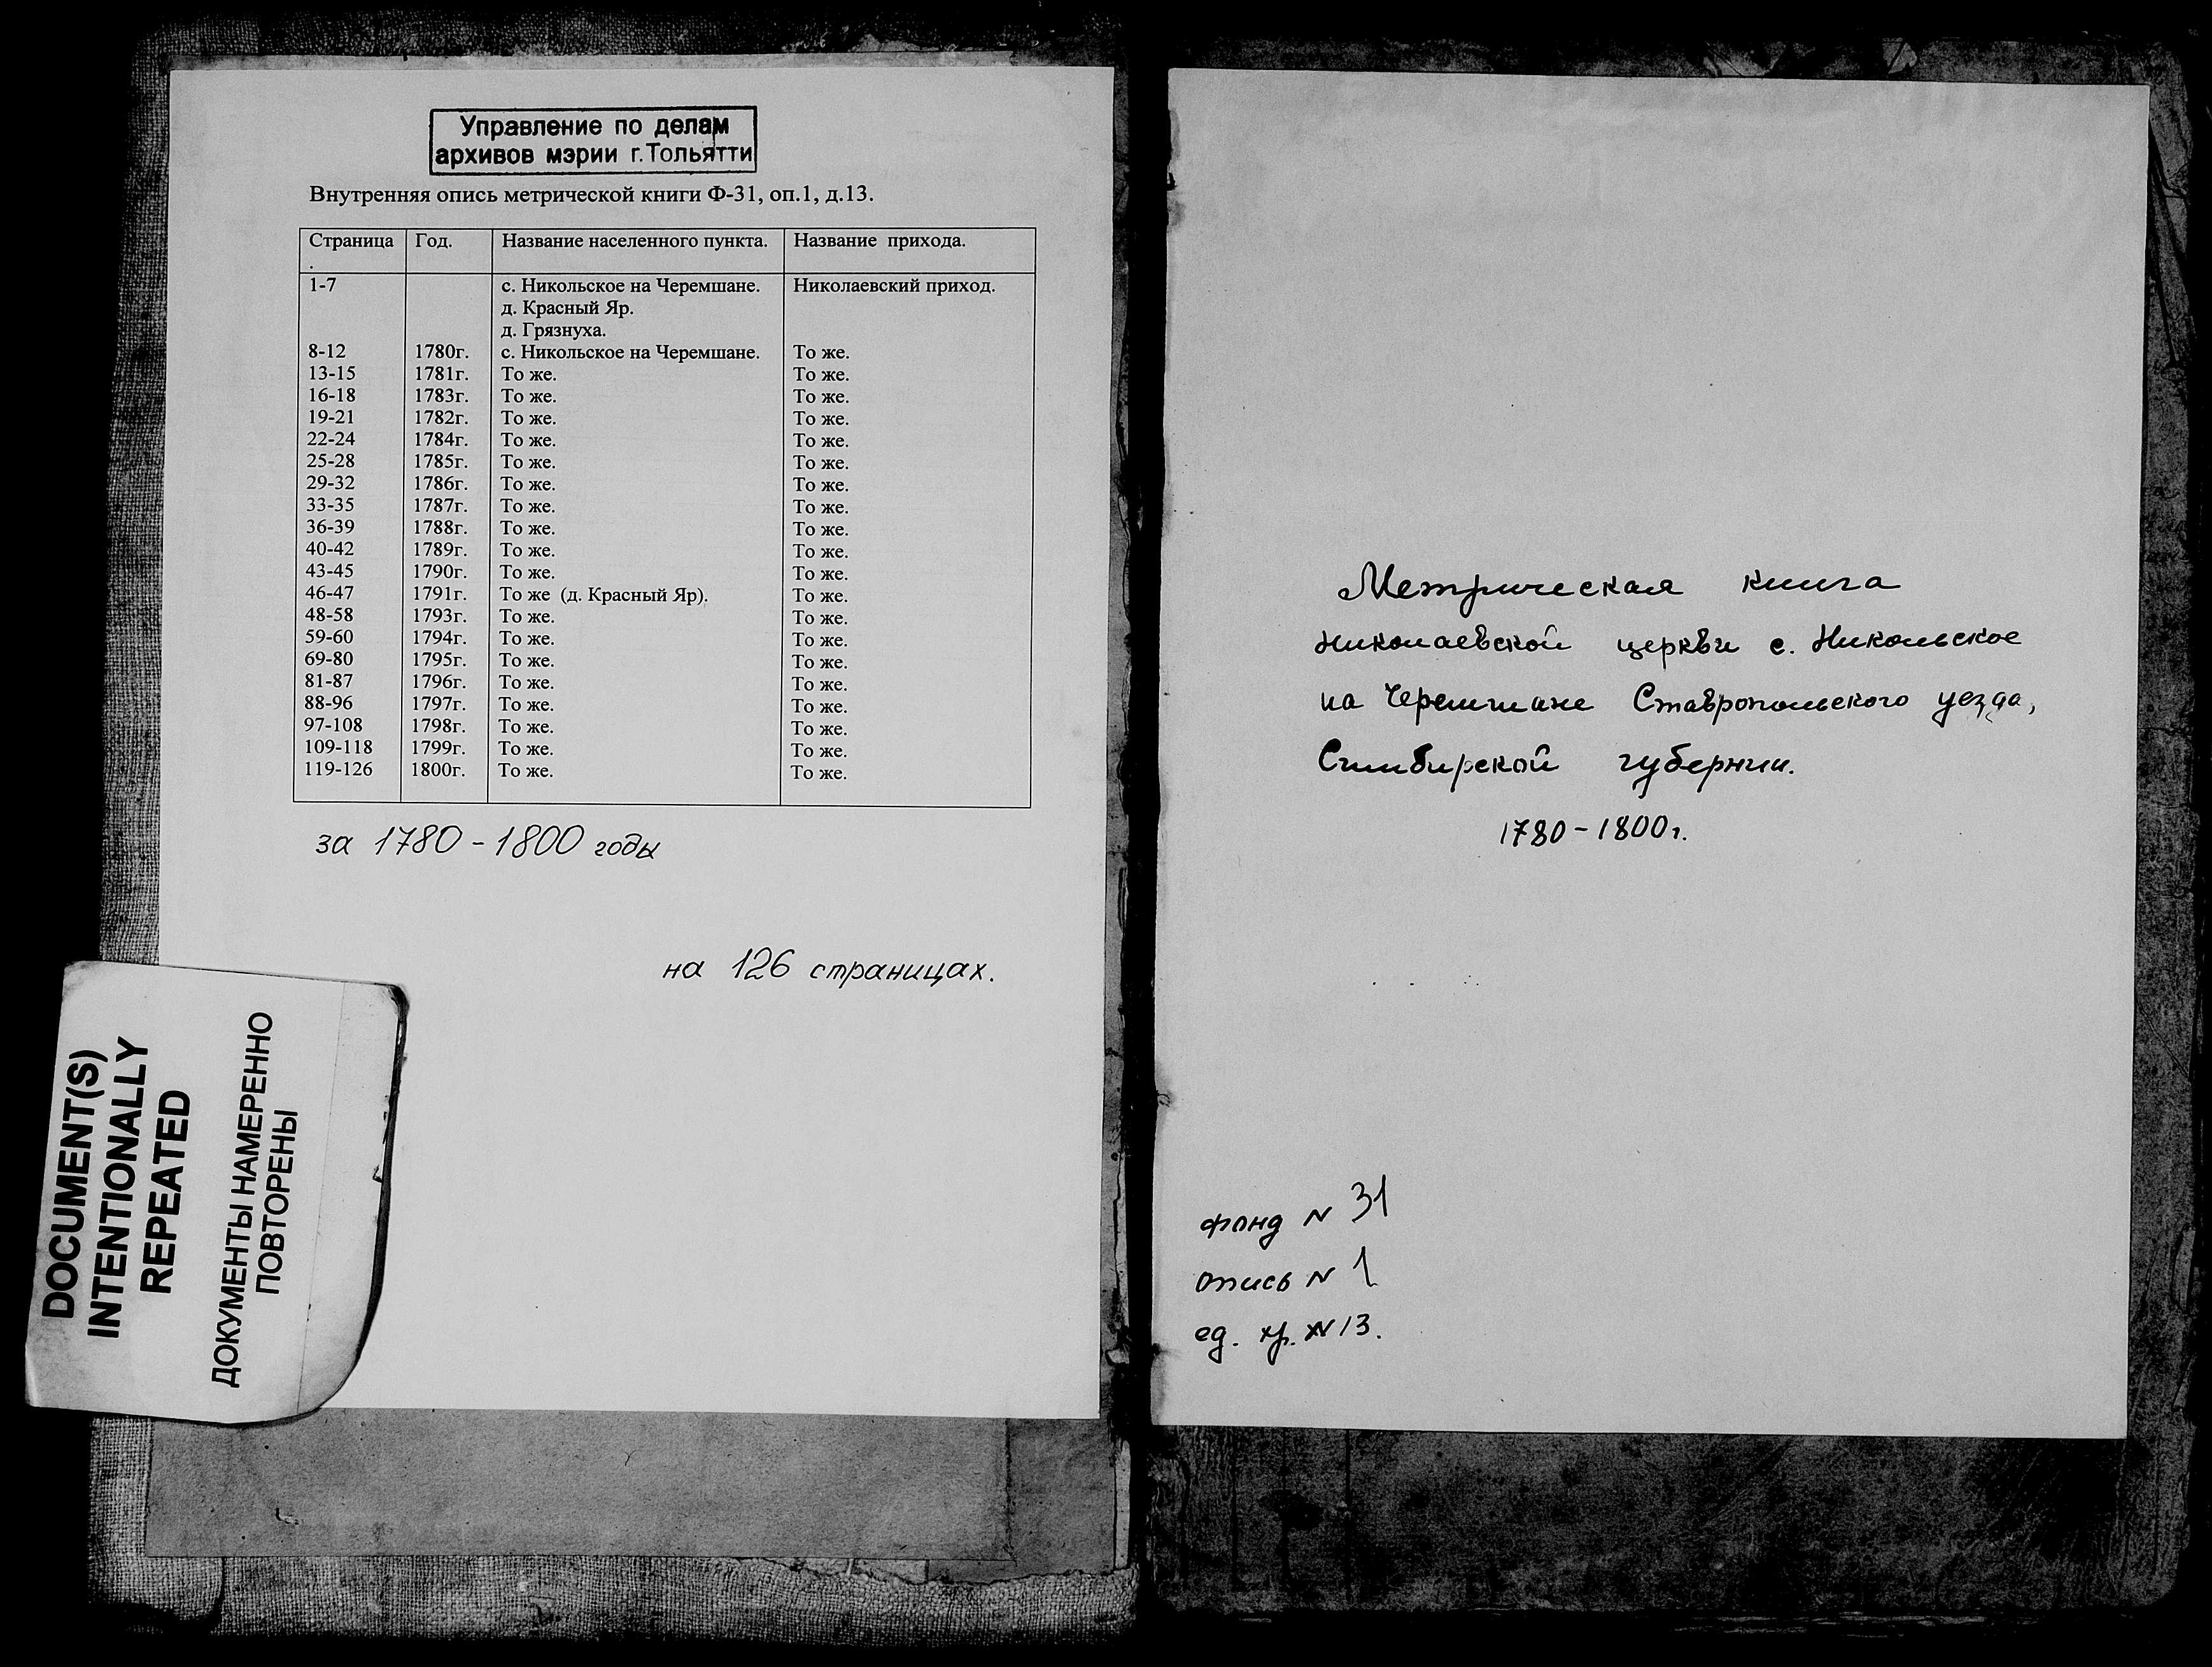 Управление по делам
архивов мэрии г.Тольятти
Внутренняя опись метрической книги Ф-31, оп.1, д.13.
Страница Год. Название населенного пункта. Название прихода.
.
1-7 с. Никольское на Черемшане. Николаевский приход.
д. Красный Яр.
д. Грязнуха.
8-12 1780г. с. Никольское на Черемшане. То же.
13-15 1781г. То же. То же.
16-18 1783г. То же. То же.
19-21 1782г. То же. То же.
22-24 1784г. То же. То же.
25-28 1785г. То же. То же.
29-32 1786г. То же. То же.
33-35 1787г. То же. То же.
36-39 1788г. То же. То же.
40-42 1789г. То же. То же.
43-45 1790г. То же. То же.
46-47 1791г. То же (д. Красный Яр). То же.
48-58 1793г. То же. То же.
59-60 1794г. То же. То же.
69-80 1795г. То же. То же.
81-87 1796г. То же. То же.
88-96 1797г. То же. То же.
97-108 1798г. То же. То же.
109-118 1799г. То же. То же.
119-126 1800г. То же. То же.
за 1780-1800 годы
на 126 страницах.
DOCUMENT(S)
INTENTIONALLY
REPEATED
ДОКУМЕНТЫ НАМЕРЕННО
ПОВТОРЕНЫ
Метрическая книга
Николаевской церкви с. Никольское
на Черемшане Ставропольского уезда,
Симбирской губернии.
1780-1800г.
фонд N 31
опись N 1
ед. хр. N 13.